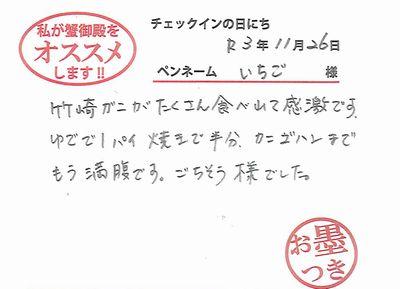 私が蟹御殿を
オススメ
します!!
チェックインの日にち
R3年11月26日
ペンネーム いちご 様
竹崎ガニがたくさん食べ出て感激です。
ゆでで1パイ 焼きで半分、カニゴハンまで
もう満腹です。ごちそう様でした。
お墨
つき